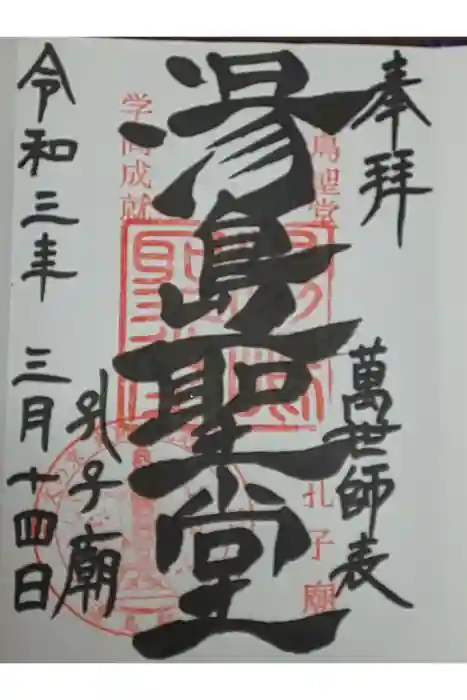 奉拝
萬世師表
湯島聖堂
孔子廟
令和三年 三月十四日
島聖堂
孔子廟
学問成就